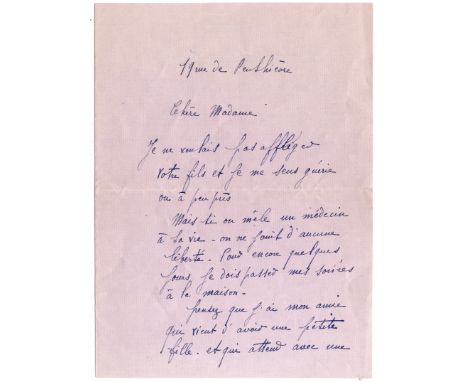 19 rue de Penthièvre
Chère Madame
Je ne voulais pas affliger
votre fils et je me sens guérie
ou à peu près
Mais si on mêle un médecin
à sa vie - on ne jouit d'aucune
liberté. Pour encore quelques
jours, je dois passer mes soirées
à la maison -
pensez que j'ai mon amie
qui vient d'avoir une petite
fille - et qui attend avec une